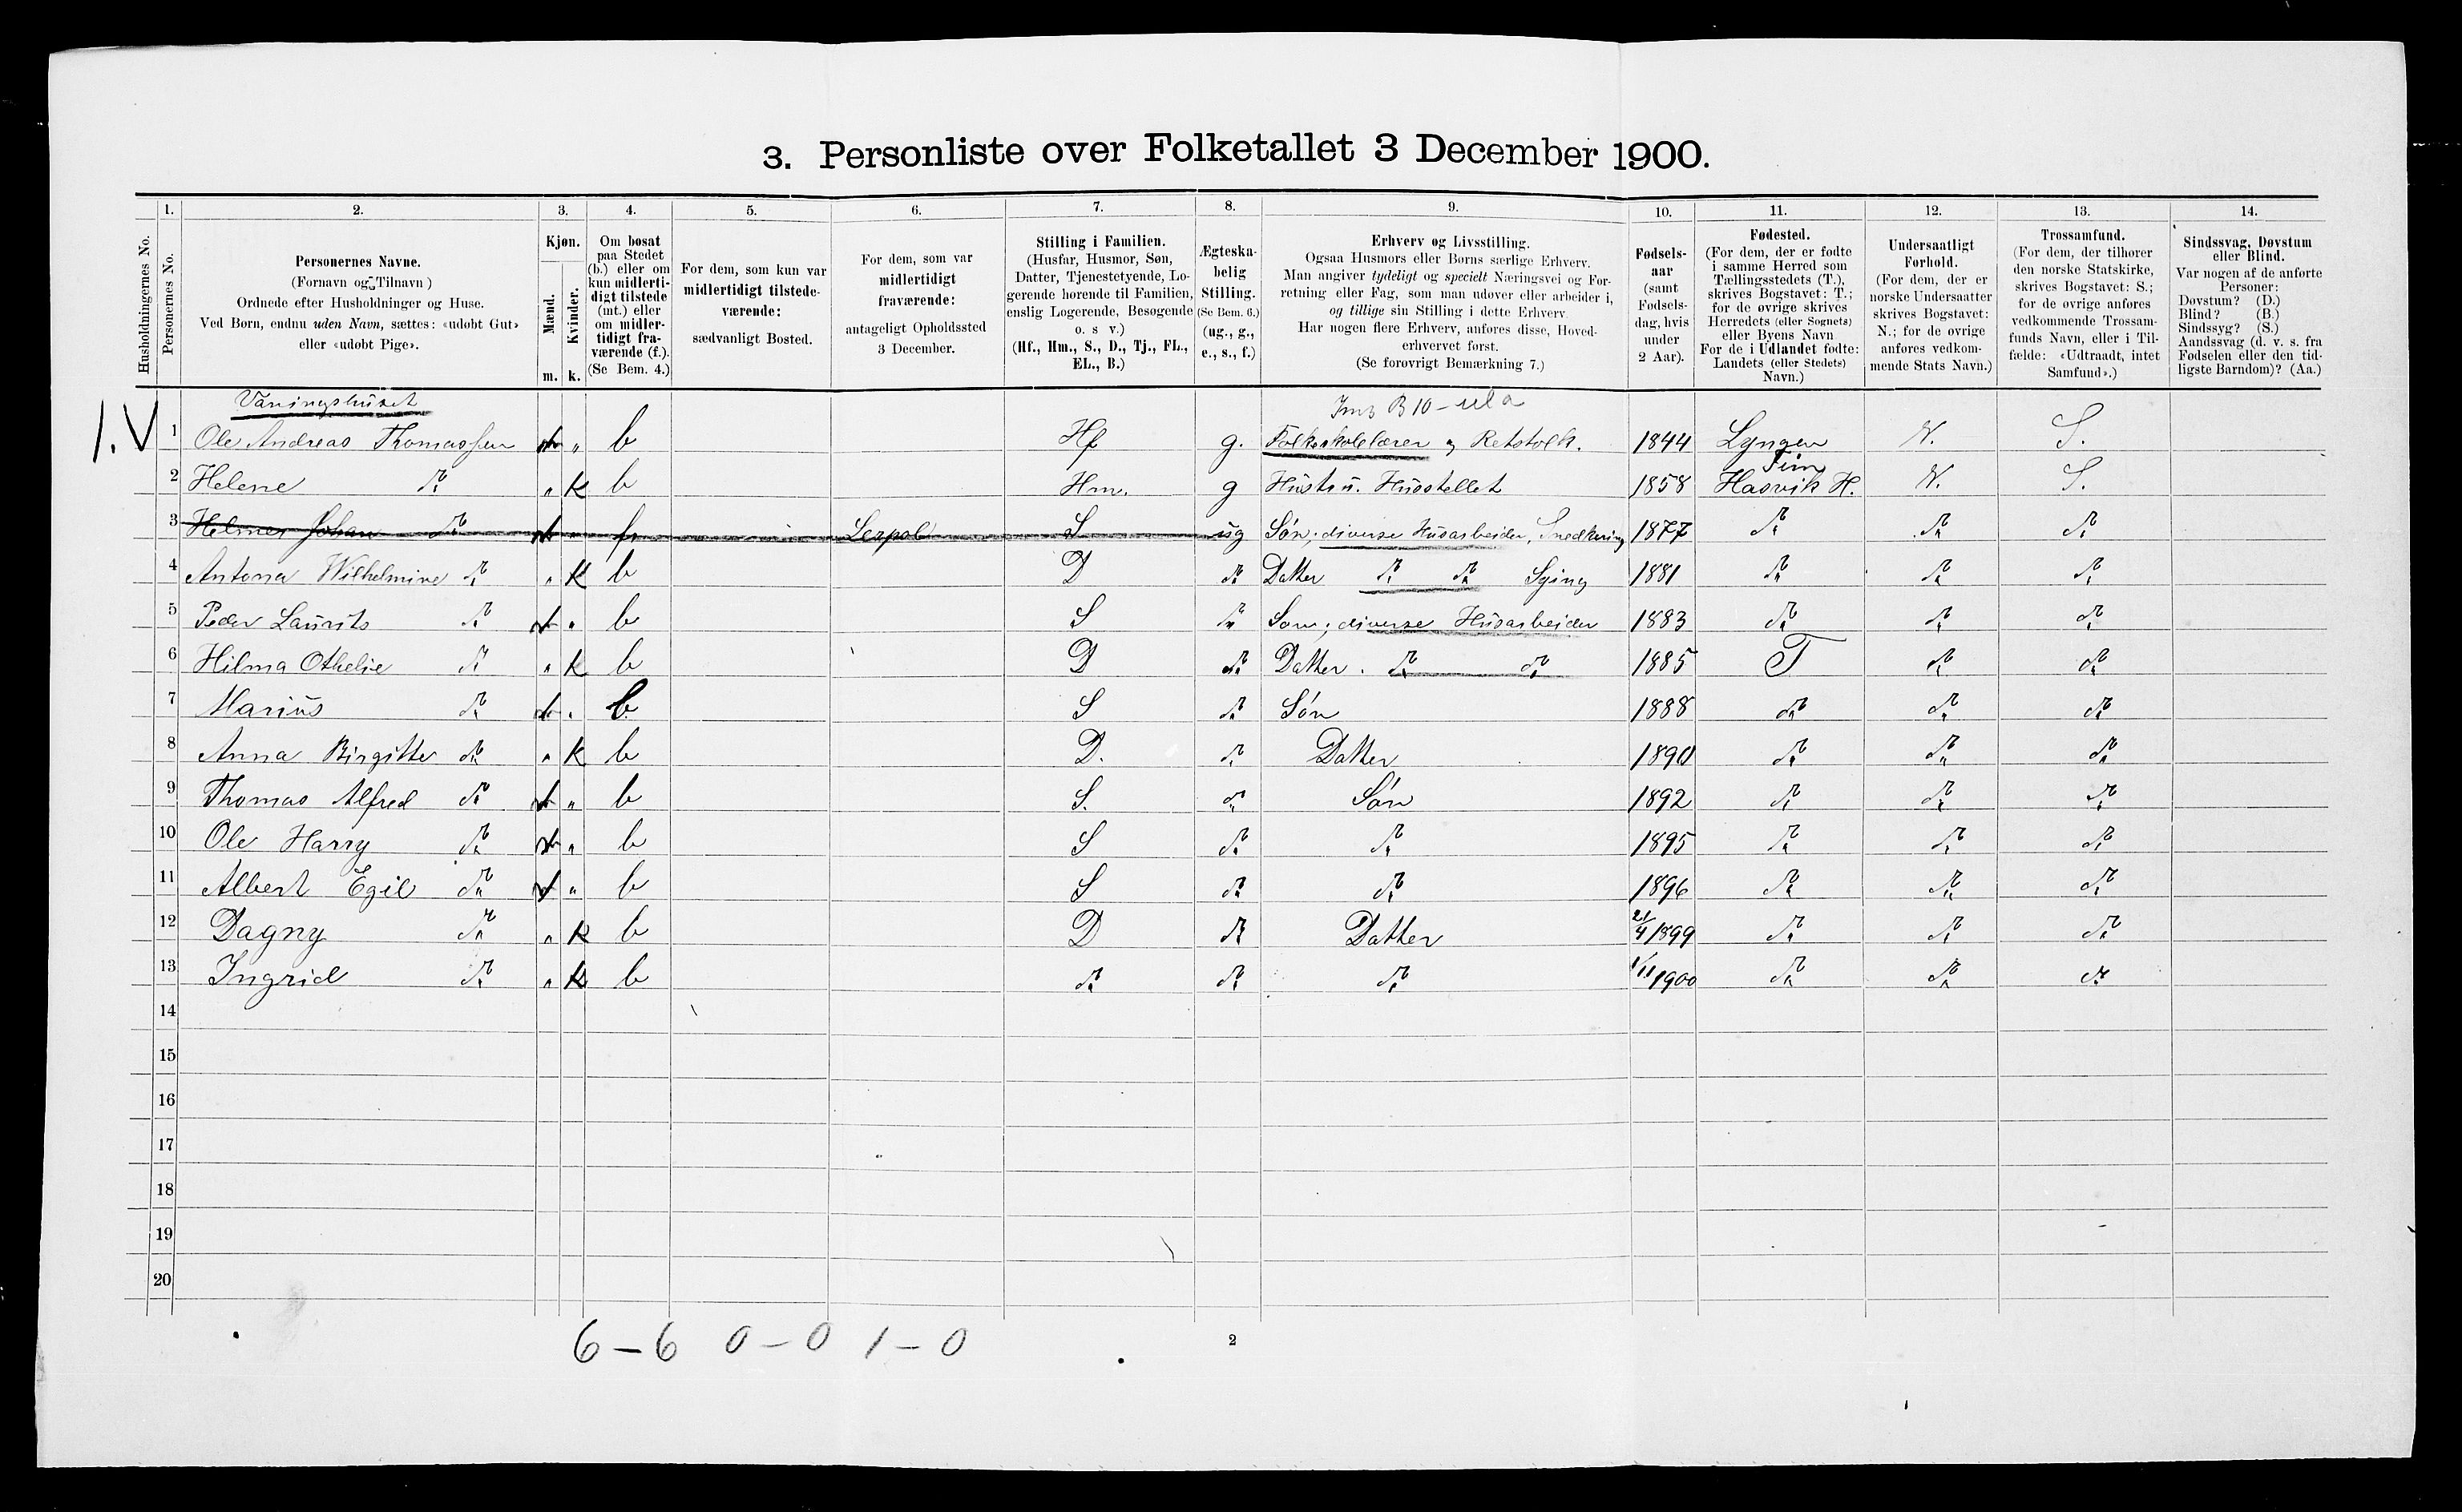 3. Personliste over Folketallet 3 December 1900.
1. 2. 3. 4. 5. 6. 7. 8. 9. 10. 11. 12. 13. 14.
Husholdningernes No.
Personernes No.
Personernes Navne.
(Fornavn og Tilnavn)
Ordnede efter Husholdninger og Huse.
Ved Børn, endnu uden Navn, sættes: «udøbt Gut»
eller «udøbt Pige».
Kjøn.
Mænd.
Kvinder.
m. k.
Om bosat
paa Stedet
(b.) eller om
kun midlerti-
digt tilstede
(mt.) eller
om midler-
tidigt fra-
værende (f.).
(Se Bem. 4.)
For dem, som kun var
midlertidigt tilstede-
værende:
sædvanligt Bosted.
For dem, som var
midlertidigt
fraværende:
antageligt Opholdssted
3 December.
Stilling i Familien.
(Husfar, Husmor, Søn,
Datter, Tjenestetyende, Lo-
gerende hørende til Familien,
enslig Logerende, Besøgende
o. s v.)
(Hf., Hm., S., D., Tj., FL.,
EL., B.)
Ægteska-
belig
Stilling.
(Se Bem. 6.)
(ug., g.,
e., s., f.)
Erhverv og Livsstilling.
Ogsaa Husmors eller Børns særlige Erhverv.
Man angiver tydeligt og specielt Næringsvei og For-
retning eller Fag, som man udøver eller arbeider i,
og tillige sin Stilling i dette Erhverv.
Har nogen flere Erhverv, anføres disse, Hoved-
erhvervet først.
(Se forøvrigt Bemærkning 7.)
Fødsels-
aar
(samt
Fødsels-
dag, hvis
under
2 Aar).
Fødested.
(For dem, der er fødte
i samme Herred som
Tællingsstedets (T.),
skrives Bogstavet: T.;
for de øvrige skrives
Herredets (eller Sognets)
eller Byens Navn
For de i Udlandet fødte:
Landets (eller Stedets)
Navn.)
Undersaatligt
Forhold.
(For dem, der er
norske Undersaatter
skrives Bogstavet:
N.; for de øvrige
anføres vedkom-
mende Stats Navn.)
Trossamfund.
(For dem, der tilhører
den norske Statskirke,
skrives Bogstavet: S.;
for de øvrige anføres
vedkommende Trossam-
funds Navn, eller i Til-
fælde: «Udtraadt, intet
Samfund».)
Sindssvag, Døvstum
eller Blind.
Var nogen af de anførte
Personer:
Døvstum? (D.)
Blind? (B.)
Sindssyg? (S.)
Aandssvag (d. v. s. fra
Fødselen eller den tid-
ligste Barndom)? (Aa.)
Vaaningshuset
1. V 1 Ole Andreas Thomassen " b Hf g. Folkeskolelærer og Retstolk. 1844 Lyngen N. S.
2 Helene do " K b Hm. g Hustru. Husstellet 1858 Hasvik H. N. S.
3 Helmer Johan do f S ug Søn; diverse Husarbeider, Snedkering 1877 do do do
4 Antona Wilhelmine do " K b D do Datter do do Sying 1881 do do do
5 Peder Laurits do " b S do Søn; diverse Husarbeider 1883 do do do
6 Hilma Othelie do " K b D do Datter. do do 1885 T do do
7 Marius do " b S do Søn 1888 do do do
8 Anna Birgitte do " K b D. do Datter 1890 do do do
9 Thomas Alfred do " b S. do Søn 1892 do do do
10 Ole Harry do " b S do do 1895 do do do
11 Albert Egil do " b S do do 1896 do do do
12 Dagny do " K b D do Datter 21/4 1899 do do do
13 Ingrid do " K b do do do 1/11 1900 do do do
14
15
16
17
18
19
20
6 – 6 0 – 0 1 – 0
2